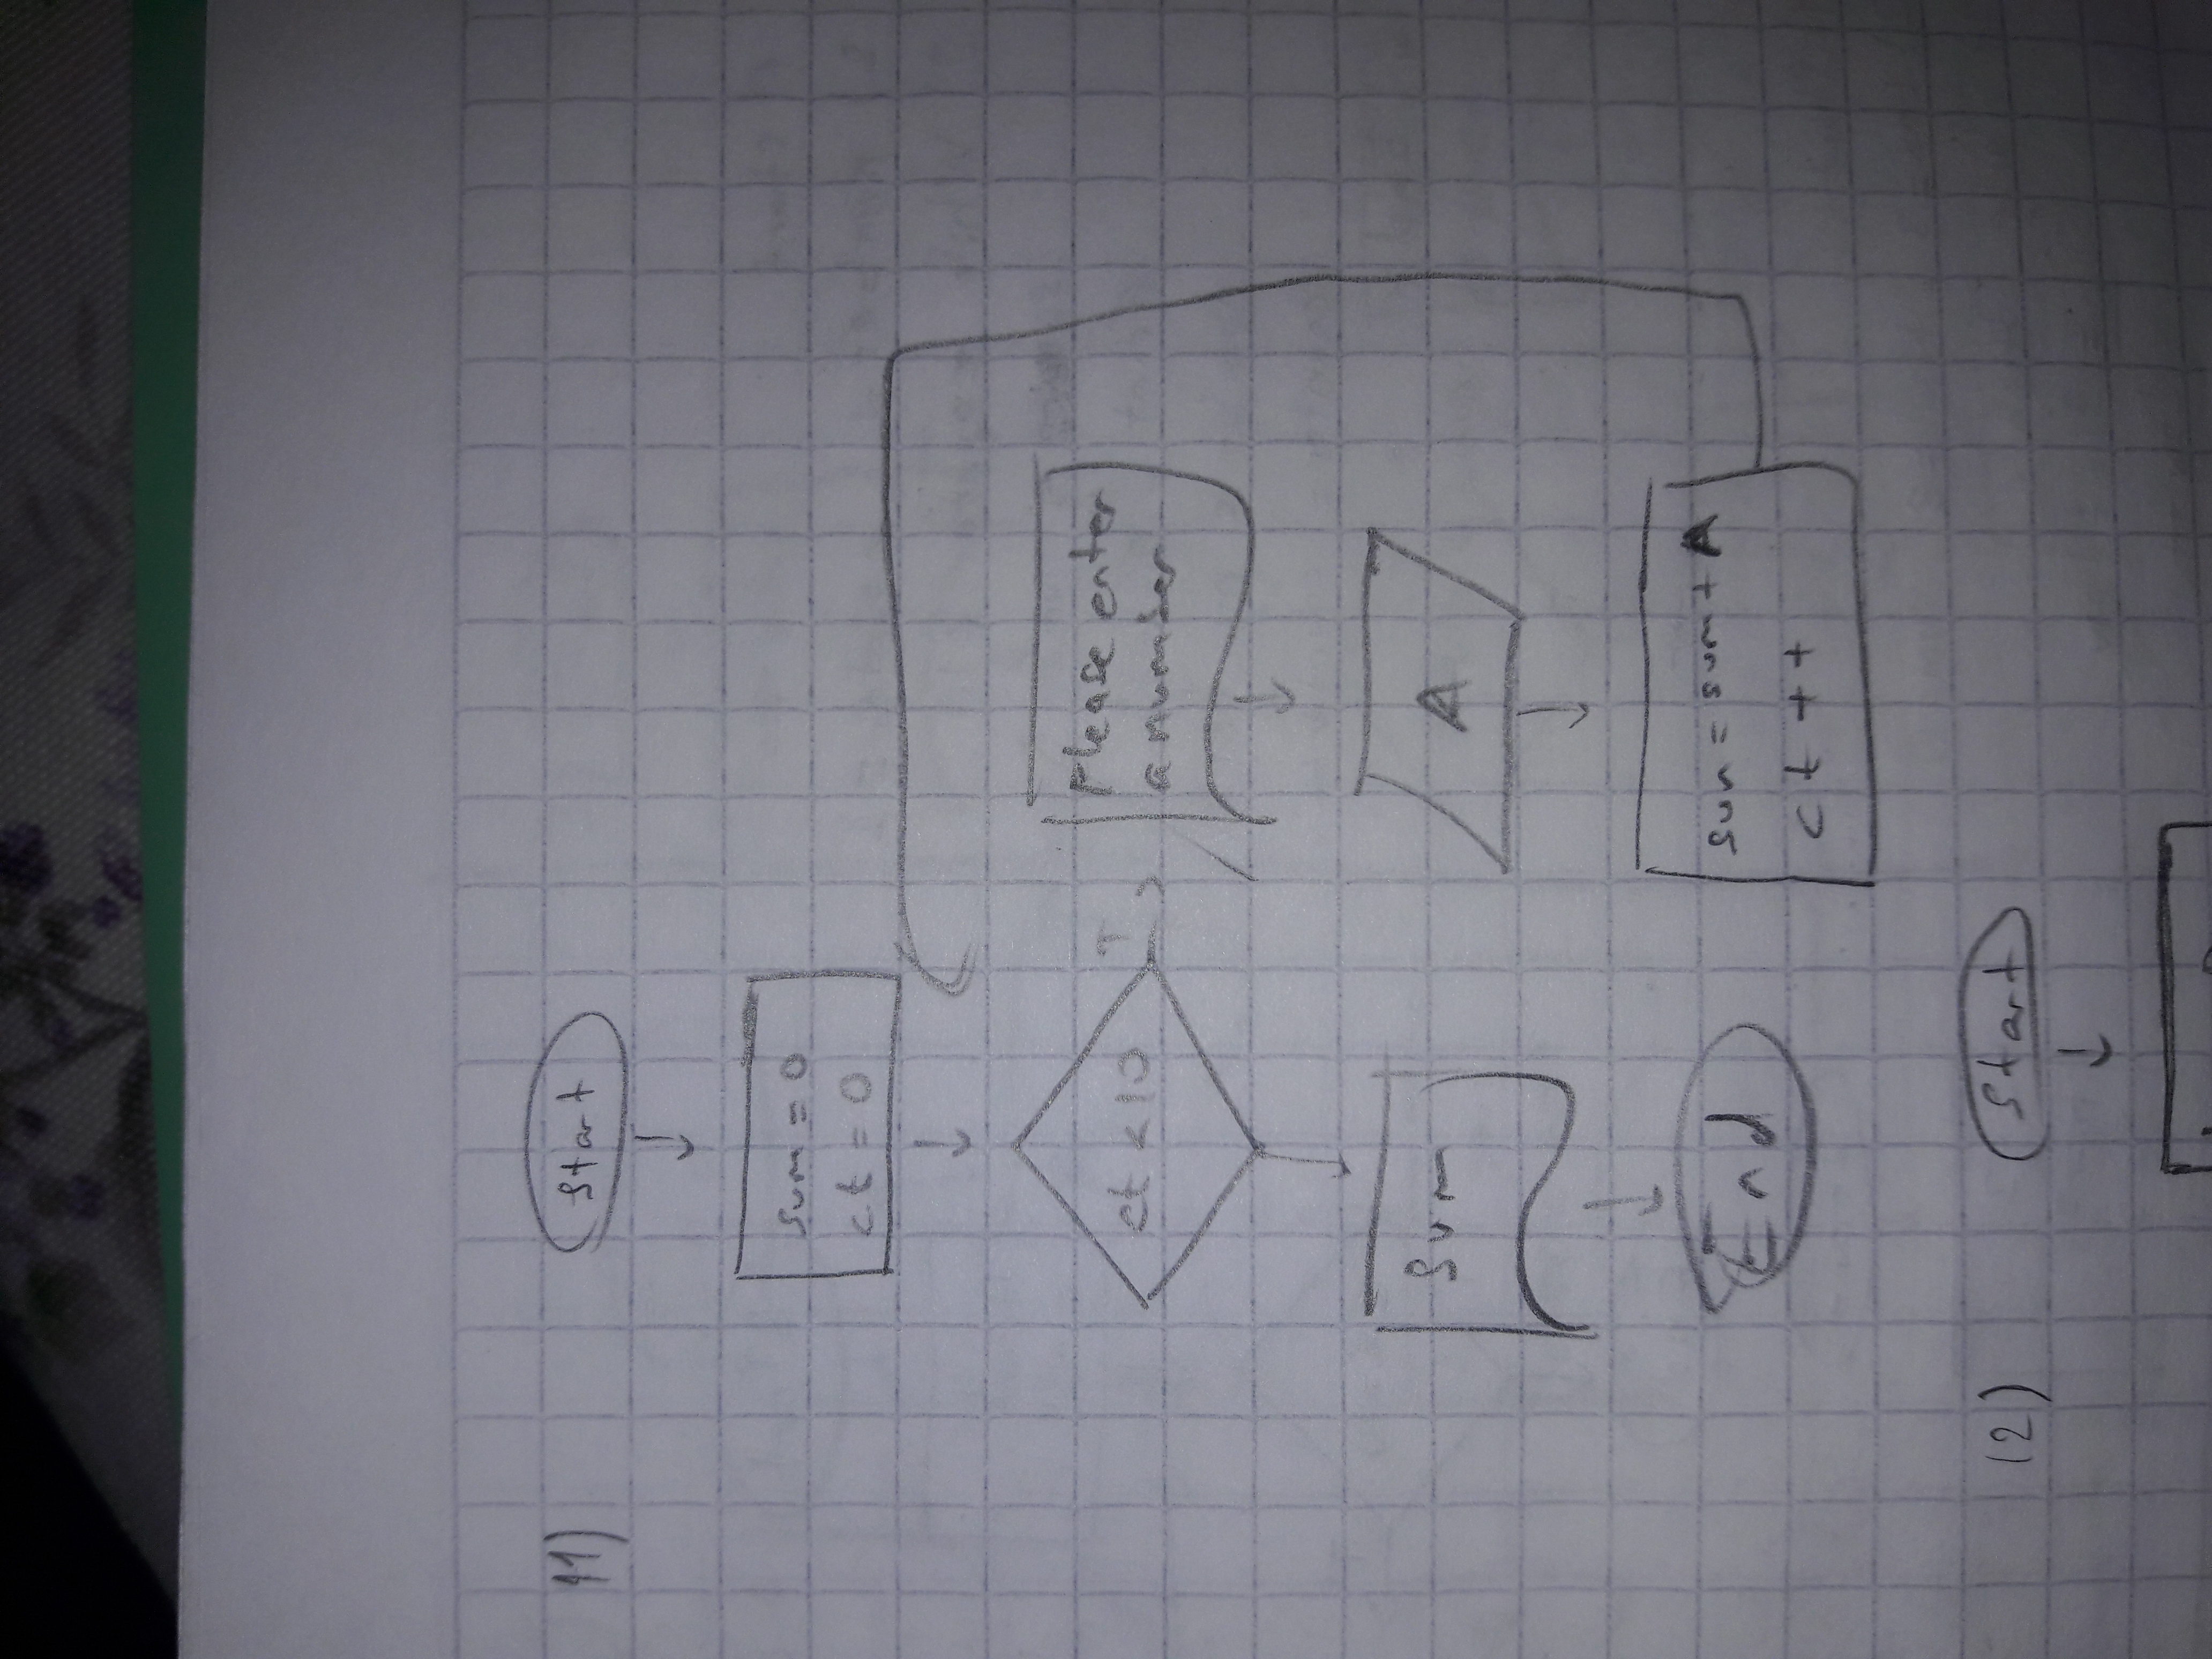 11)
Start
sum = 0
ct = 0
ct < 10
T
Please enter
a number
Sum
A
End
sum = sum + A
ct ++
12)
Start